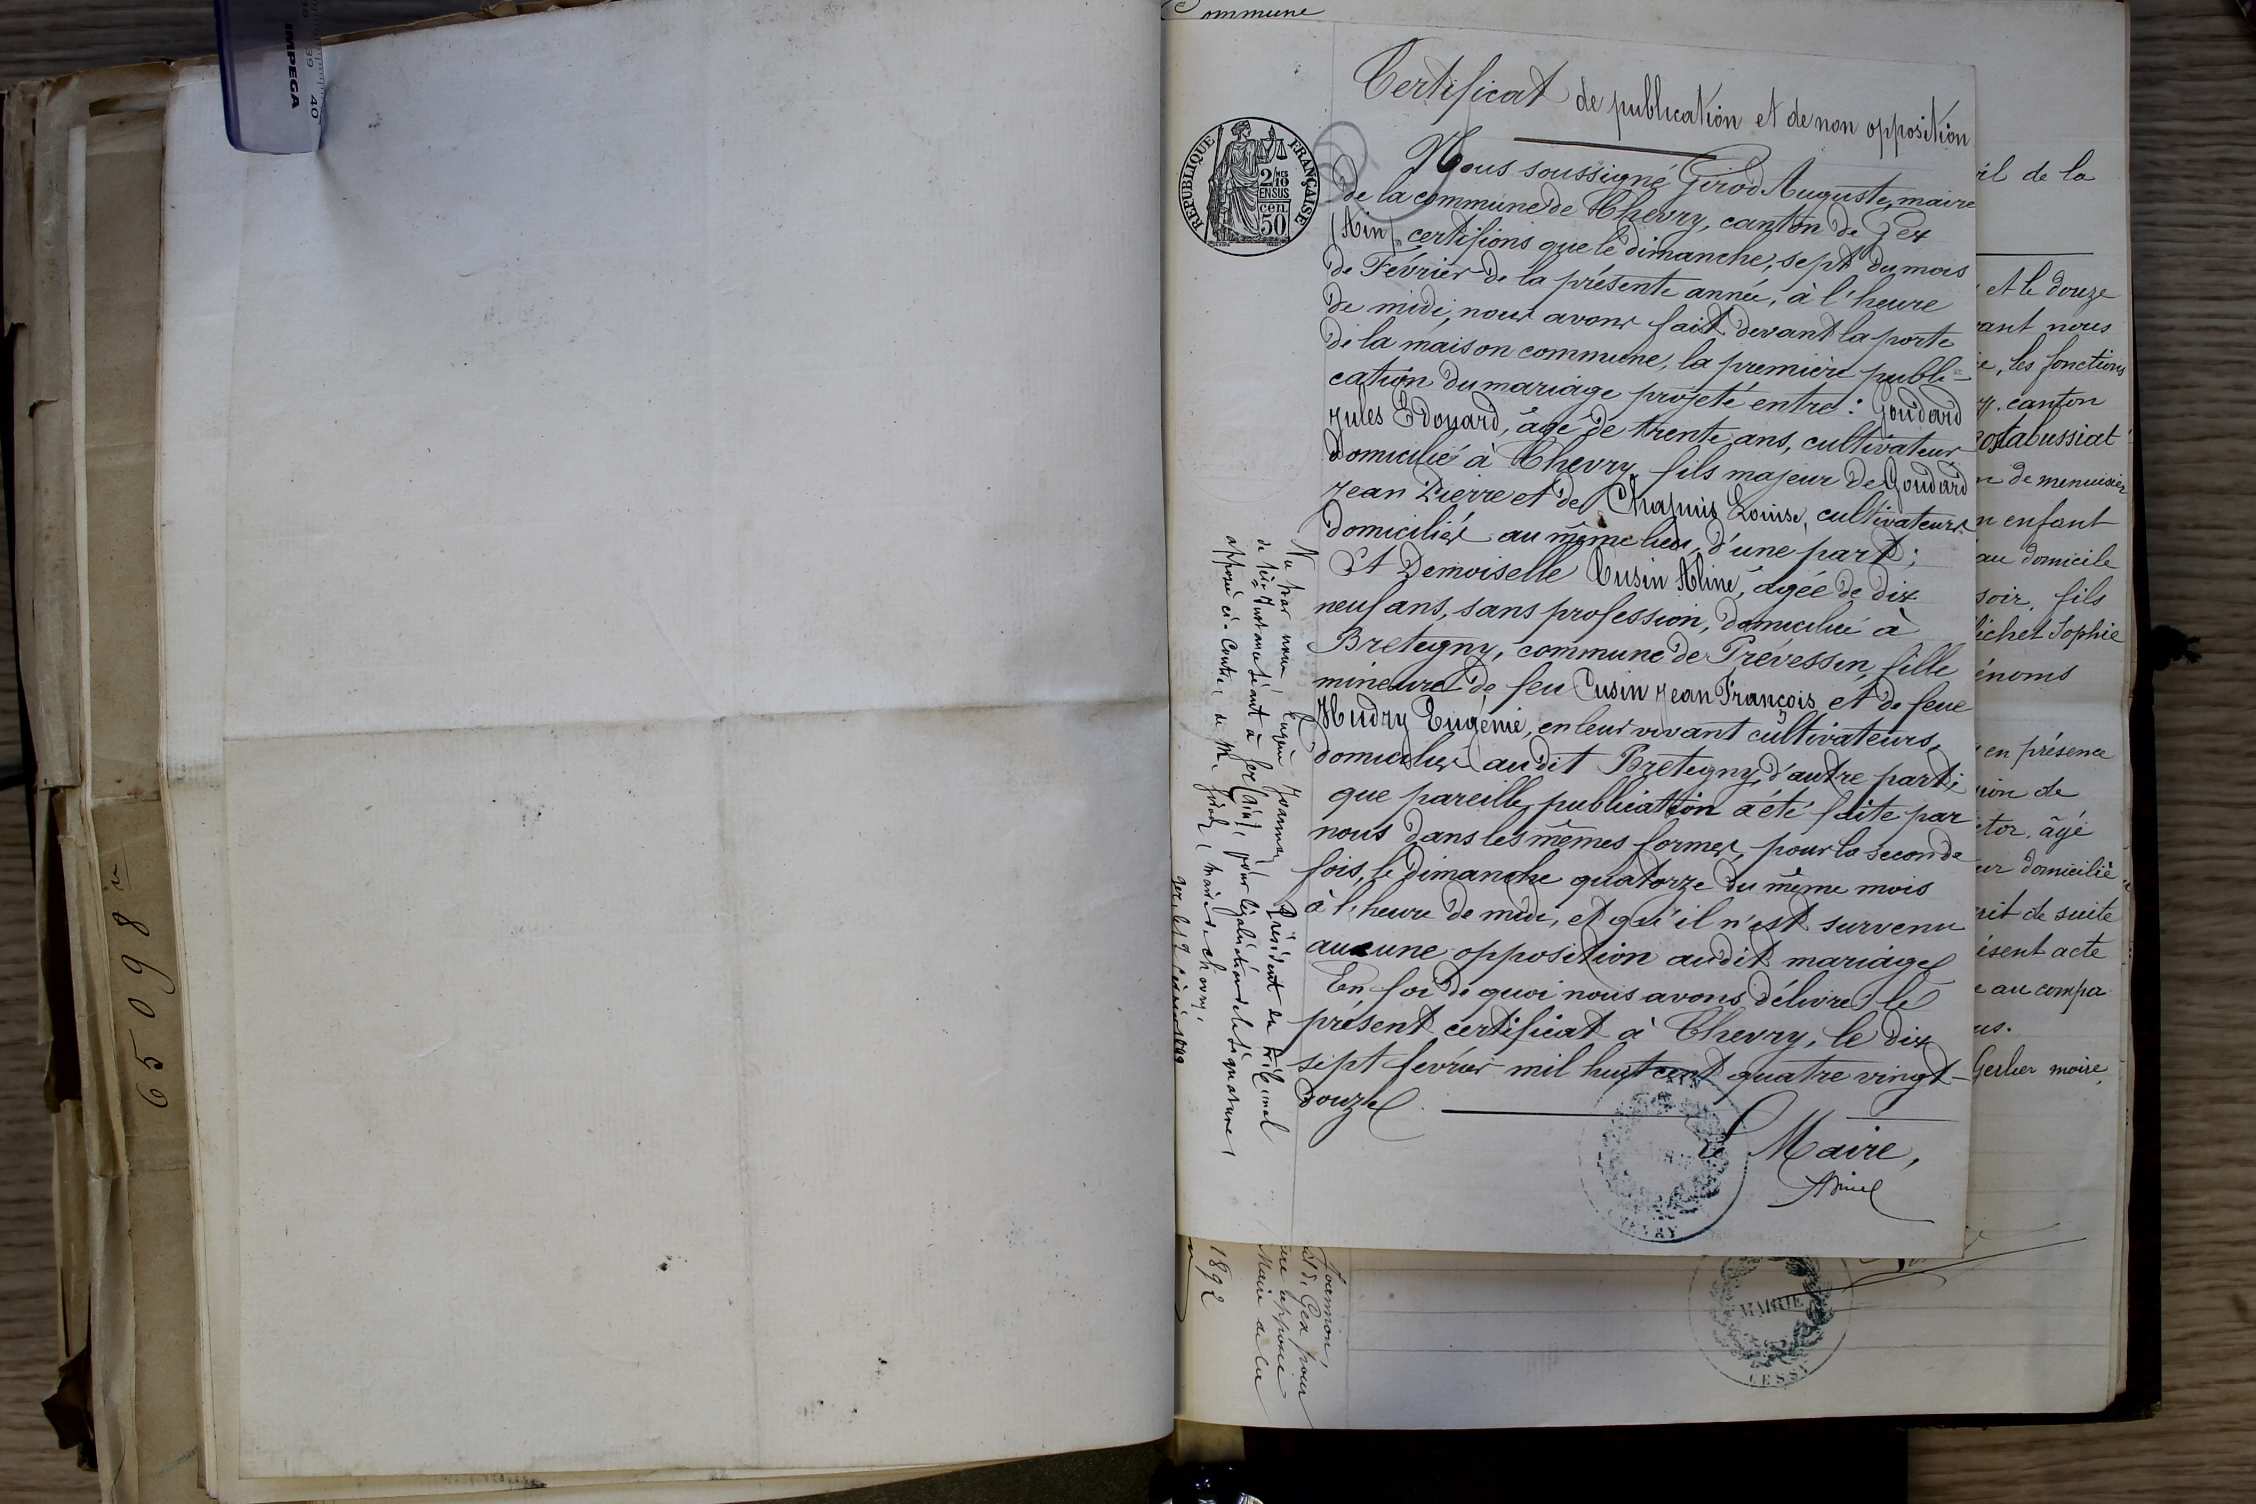 IMPEGA
39
40
v 86059
ommune
Certificat de publication et de non opposition
RÉPUBLIQUE FRANÇAISE
2/10 MES
EN SUS
50 cen
Nous soussigné Girod Auguste, maire
de la commune de Chevry, canton de Gex
(Ain) certifions que le dimanche, sept du mois
de Février de la présente année, à l'heure
de midi, nous avons fait devant la porte
de la maison commune, la première publi-
cation du mariage projeté entre : Goudard
Jules Edouard, âgé de trente ans, cultivateur
domicilié à Chevry, fils majeur de Goudard
Jean Pierre et de Chapuis Louise, cultivateurs
domiciliés au même lieu, d'une part;
Et Demoiselle Cusin Aline, âgée de dix
neuf ans, sans profession, domiciliée à
Bretigny, commune de Prévessin, fille
mineure de feu Cusin Jean François et de feue
Hudry Eugénie, en leur vivant cultivateurs,
domiciliés audit Bretigny, d'autre part;
que pareille publication a été faite par
nous dans les mêmes formes, pour la seconde
fois, le dimanche quatorze du même mois
à l'heure de midi, et qu'il n'est survenu
aucune opposition audit mariage
En foi de quoi nous avons délivré le
présent certificat à Chevry, le dix
sept février mil huit cent quatre vingt-
douze
Le Maire,
Vu par nous, Eugène Joannon, Président du tribunal
de 1ère Instance séant à Gex (Ain), pour légalisation de la signature
apposée ci-contre de M. Girod, maire de Chevry.
Gex, le 17 février 1892
Joannon,
de Gex pour
apposée
Maire de la
1892
il de la
et le douze
vant nous
ie, les fonctions
canton
ostabussiat
n de menuisier
n enfant
au domicile
soir, fils
ichet Sophie
énoms
en présence
ion de
ctor, âgé
ur domicilié
rit de suite
ésent acte
e au compa
us.
Gerlier maire
MAIRIE
CESSY